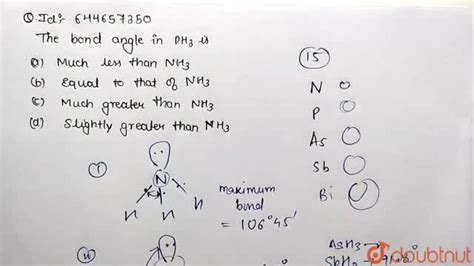 Q.Id:- 644657350
The bond angle in PH3 is
(a) Much less than NH3
(b) Equal to that of NH3
(c) Much greater than NH3
(d) Slightly greater than NH3
15
N
P
As
Sb
Bi
(i)
N
H H H
maximum
bond
= 106°45'
(ii)
AsH3
SbH3
doubtnut